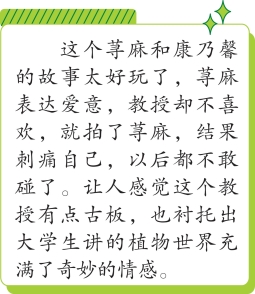 这个荨麻和康乃馨
的故事太好玩了，荨麻
表达爱意，教授却不喜
欢，就拍了荨麻，结果
刺痛自己，以后都不敢
碰了。让人感觉这个教
授有点古板，也衬托出
大学生讲的植物世界充
满了奇妙的情感。